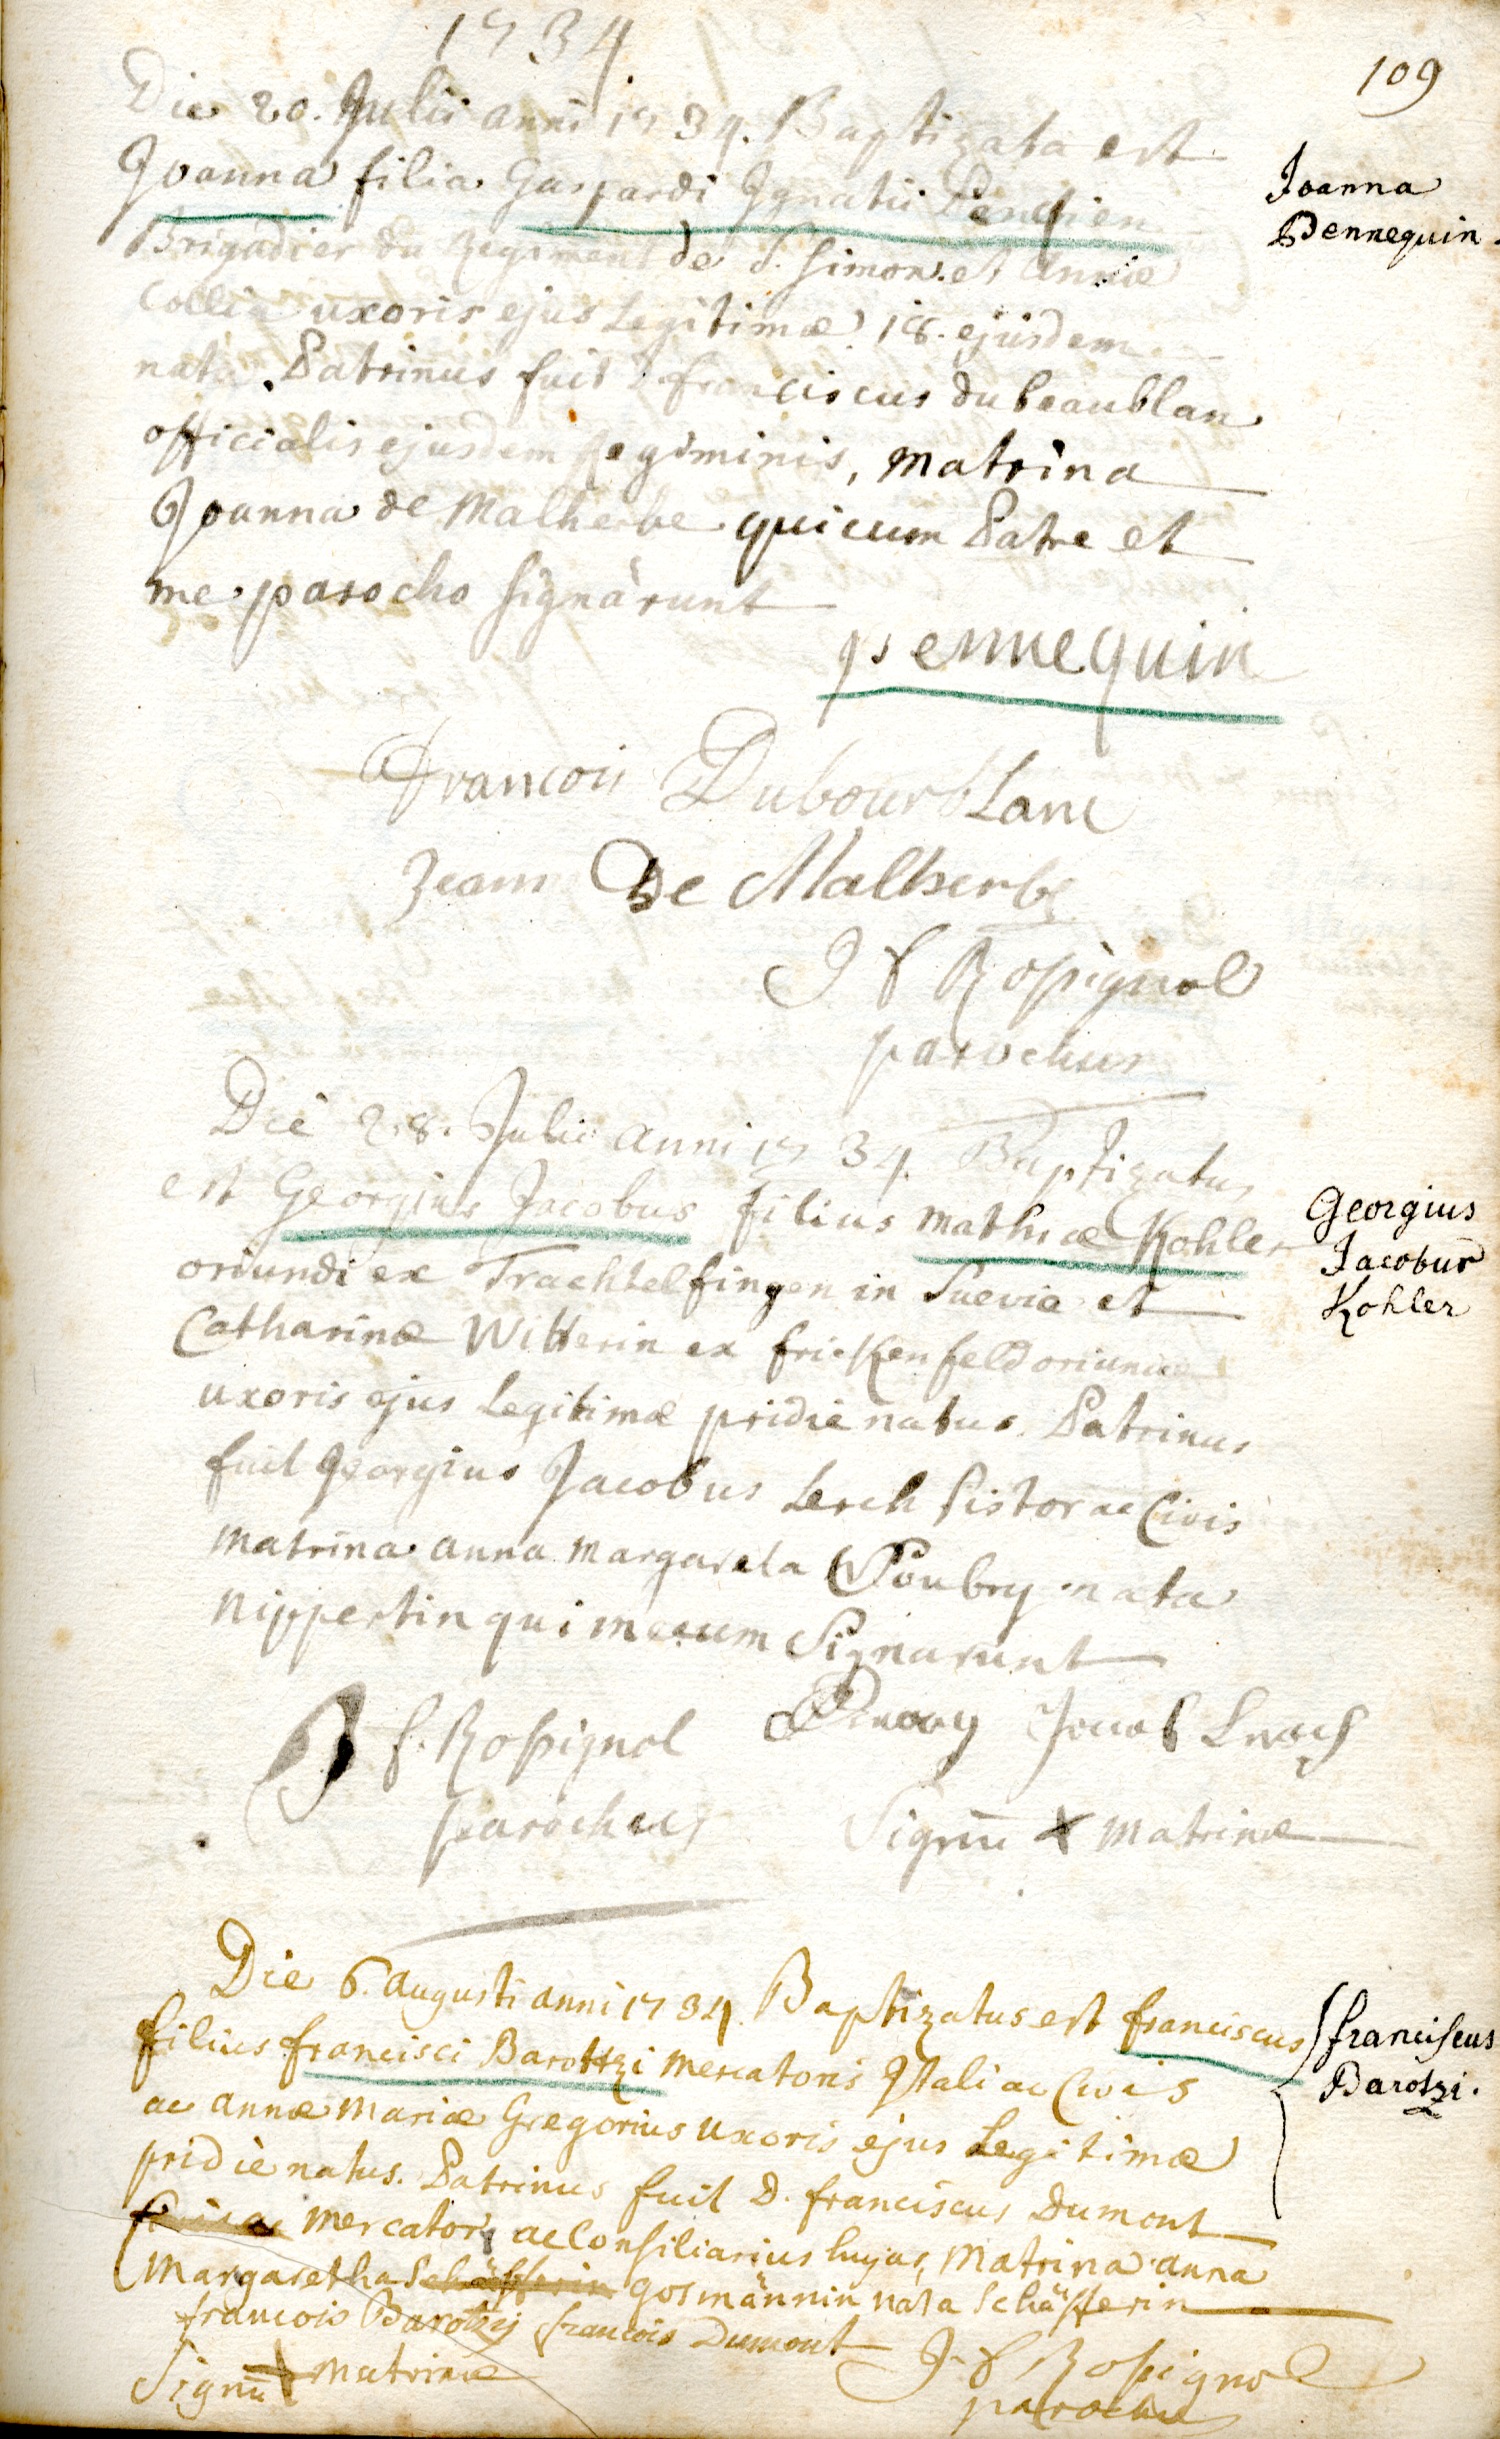 1734
109
Die 20. Julii anni 1734. Baptizata est
Joanna filia Gaspardi Ignatii Penqien
Brigadier du Regiment de S. Simon et Annæ
Collin uxoris ejus Legitimæ 18. ejusdem
nata. Patrinus fuit D. franciscus du beaublan
officialis ejusdem Regiminis, matrina
Joanna de Malherbe qui cum Patre et
me parocho signârunt
Joanna
Pennequin.
pennequin
Francois Dubourblanc
Jeanne De Malherbe
J f Rosignol
parochus
Die 28. Julii anni 1734. Baptizatus
est Georgius Jacobus filius Mathiæ Kohler
oriundi ex Trachtelfingen in Suevia et
Catharinæ Witterin ex frickenfeld oriundæ
uxoris ejus Legitimæ pridie natus. Patrinus
fuit Georgius Jacobus Lerch Pistor ac Civis
matrina anna margareta Poubry nata
Nippertin qui mecum Signarunt
Georgius
Jacobus
Kohler
J f. Rosignol Jacob Lerch
parochus Signū x matrinæ
Die 6. augusti anni 1734. Baptizatus est franciscus
filius francisci Barottzi mercatoris Itali ac Civis
ac annæ Mariæ Gregorius uxoris ejus Legitimæ
pridie natus. Patrinus fuit D. franciscus Dumont
mercator ac Consiliarius hujas, Matrina anna
Margaretha Schäfferin gosmännin nata Schäfferin
francois Barotzy francois Dumont
Signū x matrinæ
J f Rosignol
parochus
franciscus
Barotzi.